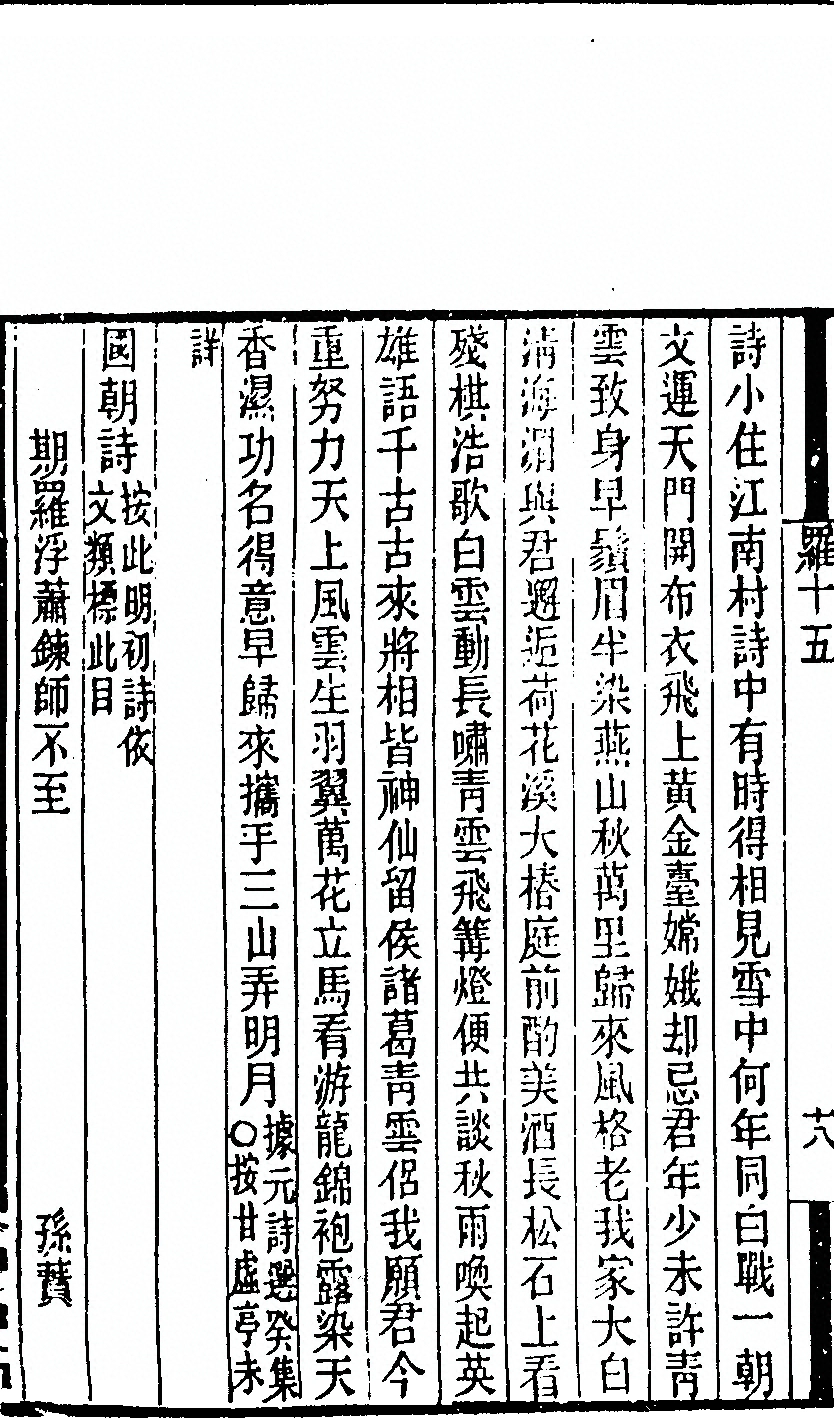 羅十五
十八
詩小住江南村詩中有時得相見雪中何年同白戰一朝
文運天門開布衣飛上黃金臺嫦娥却忌君年少未許靑
雲致身早鬚眉半染燕山秋萬里歸來風格老我家大白
淸海涓與君邂逅荷花溪大椿庭前酌美酒長松石上看
殘棋浩歌白雲動長嘯靑雲飛篝燈便共談秋雨喚起英
雄語千古古來將相皆神仙留侯諸葛靑雲侶我願君今
重努力天上風雲生羽翼萬花立馬看游龍錦袍露染天
香濕功名得意早歸來攜手三山弄明月據元詩選癸集
○按甘虛亭未
詳
國朝詩按此明初詩依
文類標此目
期羅浮蕭鍊師不至 孫蕡